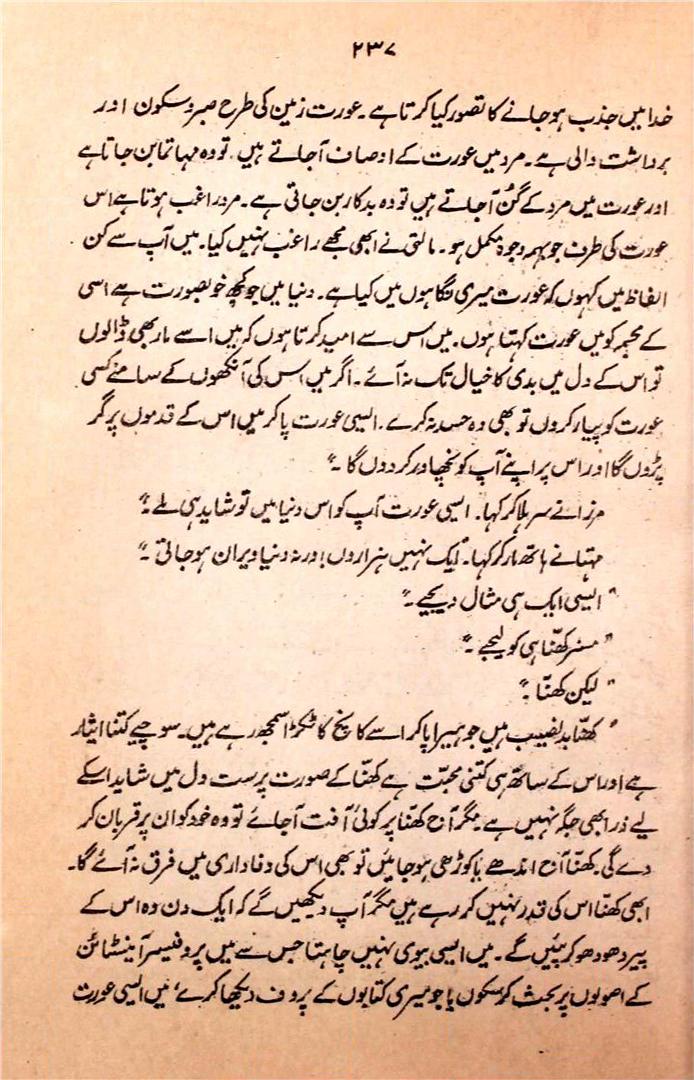 ۲۳۷
خدا میں جذب ہو جانے کا تصور کیا کرتا ہے۔ عورت زمین کی طرح صبر و سکون اور
برداشت والی ہے۔ مرد میں عورت کے اوصاف آجاتے ہیں۔ تو وہ مہاتما بن جاتا ہے
اور عورت میں مرد کے گُن آجاتے ہیں تو وہ بدکار بن جاتی ہے۔ مرد راغب ہوتا ہے اس
عورت کی طرف جو بہمہ وجوہ مکمل ہو۔ مالتی نے ابھی مجھے راغب نہیں کیا۔ میں آپ سے کن
الفاظ میں کہوں کہ عورت میری نگاہوں میں کیا ہے۔ دنیا میں جو کچھ خوبصورت ہے اسی
کے مجسم کو میں عورت کہتا ہوں۔ میں اس سے امید کرتا ہوں کہ میں اسے مار بھی ڈالوں
تو اس کے دل میں بدی کا خیال تک نہ آئے۔ اگر میں اس کی آنکھوں کے سامنے کسی
عورت کو پیار کروں تو بھی وہ حسد نہ کرے۔ ایسی عورت پا کر میں اس کے قدموں پر گر
پڑوں گا اور اس پر اپنے آپ کو نچھاور کر دوں گا۔"
مرزا نے سر ہلا کر کہا۔ ایسی عورت آپ کو اس دنیا میں تو شاید ہی ملے۔"
مہتا نے ہاتھ مار کر کہا۔ ایک نہیں ہزاروں! ورنہ دنیا ویران ہو جاتی۔"
"ایسی ایک ہی مثال دیجیے۔"
"مسز کھنّا ہی کو لیجیے۔"
"لیکن کھنّا۔"
"کھنّا بدنصیب ہیں جو ہیرا پا کر اسے کانچ کا ٹکڑا سمجھ رہے ہیں۔ سوچیے کتنا ایثار
ہے اور اس کے ساتھ ہی کتنی محبّت ہے کھنّا کے صورت پرست دل میں شاید اسکے
لیے ذرا بھی جگہ نہیں ہے۔ مگر آج کھنّا پر کوئی آفت آجائے تو وہ خود کو ان پر قربان کر
دے گی۔ کھنّا آج اندھے یا کوڑھی ہو جائیں تو بھی اس کی وفاداری میں فرق نہ آئے گا۔
ابھی کھنّا اس کی قدر نہیں کر رہے ہیں مگر آپ دیکھیں گے کہ ایک دن وہ اس کے
پیر دھو دھو کر پئیں گے۔ میں ایسی بیوی نہیں چاہتا جس سے میں پروفیسر آئینسٹائن
کے اصولوں پر بحث کر سکوں یا جو میری کتابوں کے پروف دیکھا کرے، میں ایسی عورت